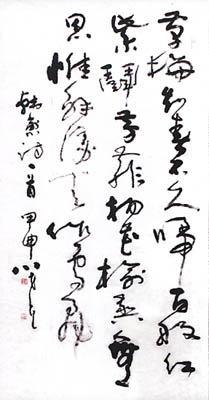 草樹知春不久歸百般紅
紫鬭芳菲楊花榆莢無
思惟解漫天作雪飛
韓愈詩一首甲申